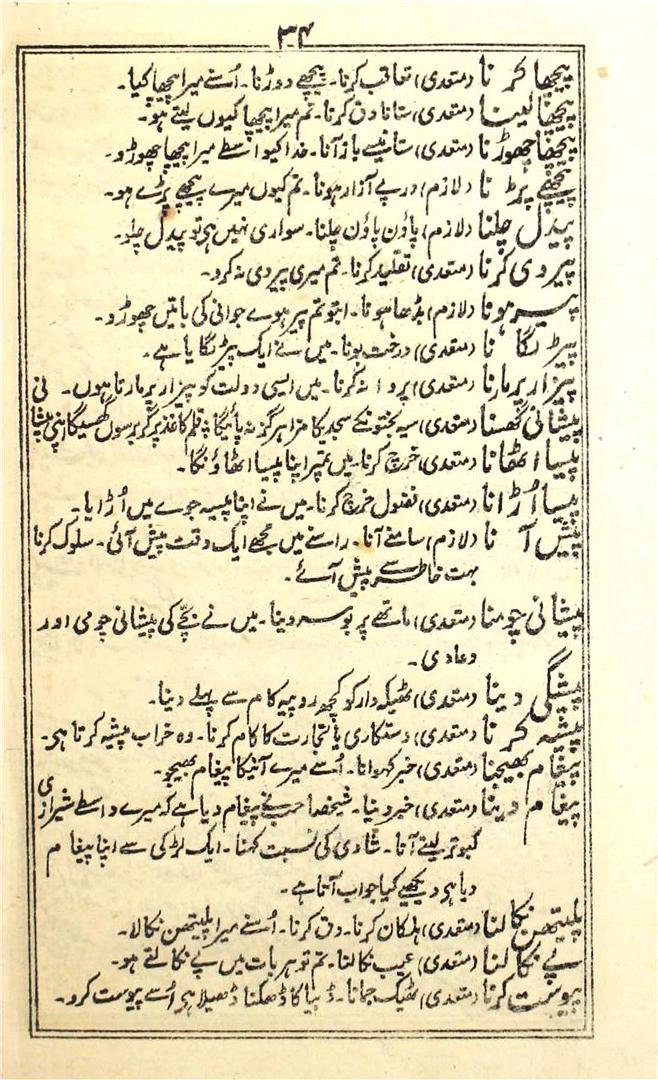 ۳۴
پیچھا کرنا (متعدی) تعاقب کرنا۔ پیچھے دوڑنا۔ اُسنے میرا پیچھا کیا۔
پیچھا لینا (متعدی) ستانا دق کرنا۔ تم میرا پیچھا کیوں لیتے ہو۔
پیچھا چھوڑنا (متعدی) ستانیسے باز آنا۔ خدا کیواسطے میرا پیچھا چھوڑو۔
پیچھے پڑنا (لازم) درپے آزار ہونا۔ تم کیوں میرے پیچھے پڑے ہو۔
پیدل چلنا (لازم) پاؤں پاؤں چلنا۔ سواری نہیں ہی تو پیدل چلو۔
پیروی کرنا (متعدی) تقلید کرنا۔ تم میری پیروی نہ کرو۔
پیر ہونا (لازم) بڑھا ہونا۔ ابتو تم پیر ہوے جوانی کی باتیں چھوڑو۔
پیڑ لگانا (متعدی) درخت بونا۔ میں نے ایک پیڑ لگایا ہے۔
پیزار پر مارنا (متعدی) پروا نہ کرنا۔ میں ایسی دولت کو پیزار پر مارتا ہوں۔
پیشانی گھسنا (متعدی) سیہ بختونکے سجدہ کا مزا ہرگز نہ پائیگا ؞ قلم کاغذ پر گر برسوں گھسیگا اپنی پیشانی
پیسا اٹھانا (متعدی) خرچ کرنا۔ میں تمپر اپنا پیسا اٹھاؤنگا۔
پیسا اُڑانا (متعدی) فضول خرچ کرنا۔ میں نے اپنا پیسہ جوے میں اُڑایا۔
پیش آنا (لازم) سامنے آنا۔ راستے میں مجھے ایک دقت پیش آئی۔ سلوک کرنا
بہت خاطر سے پیش آئے۔
پیشانی چومنا (متعدی) ماتھے پر بوسہ دینا۔ میں نے بچّے کی پیشانی چومی اور
دعا دی۔
پیشگی دینا (متعدی) ٹھیکہ دار کو کچھ روپیہ کام سے پہلے دینا۔
پیشہ کرنا (متعدی) دستکاری یا تجارت کا کام کرنا۔ وہ خراب پیشہ کرتا ہی۔
پیغام بھیجنا (متعدی) خبر کہوانا۔ اُسے میرے آنیکا پیغام بھیجو۔
پیغام دینا (متعدی) خبر دینا۔ شیخصاحب نے پیغام دیا ہے کہ میرے واسطے شیرازی
کبوتر لیتے آنا۔ شادی کی نسبت کہنا۔ ایک لڑکی سے اپنا پیغام
دیا ہی دیکھیے کیا جواب آتا ہے۔
پلیتھن نکالنا (متعدی) ہلکان کرنا۔ دق کرنا۔ اُسنے میرا پلیتھن نکالا۔
پے نکالنا (متعدی) عیب نکالنا۔ تم تو ہر بات میں پے نکالتے ہو۔
پیوست کرنا (متعدی) ٹھیک جمانا۔ ڈبیا کا ڈھکنا ڈھیلا ہی اُسے پیوست کرو۔